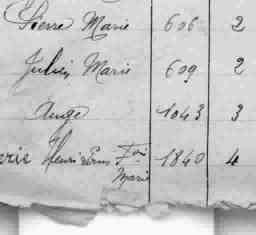 Pierre Marie 606 2
Julien Marie 609 2
Ange 1043 3
erie Henri Fois 1840 4
Marie